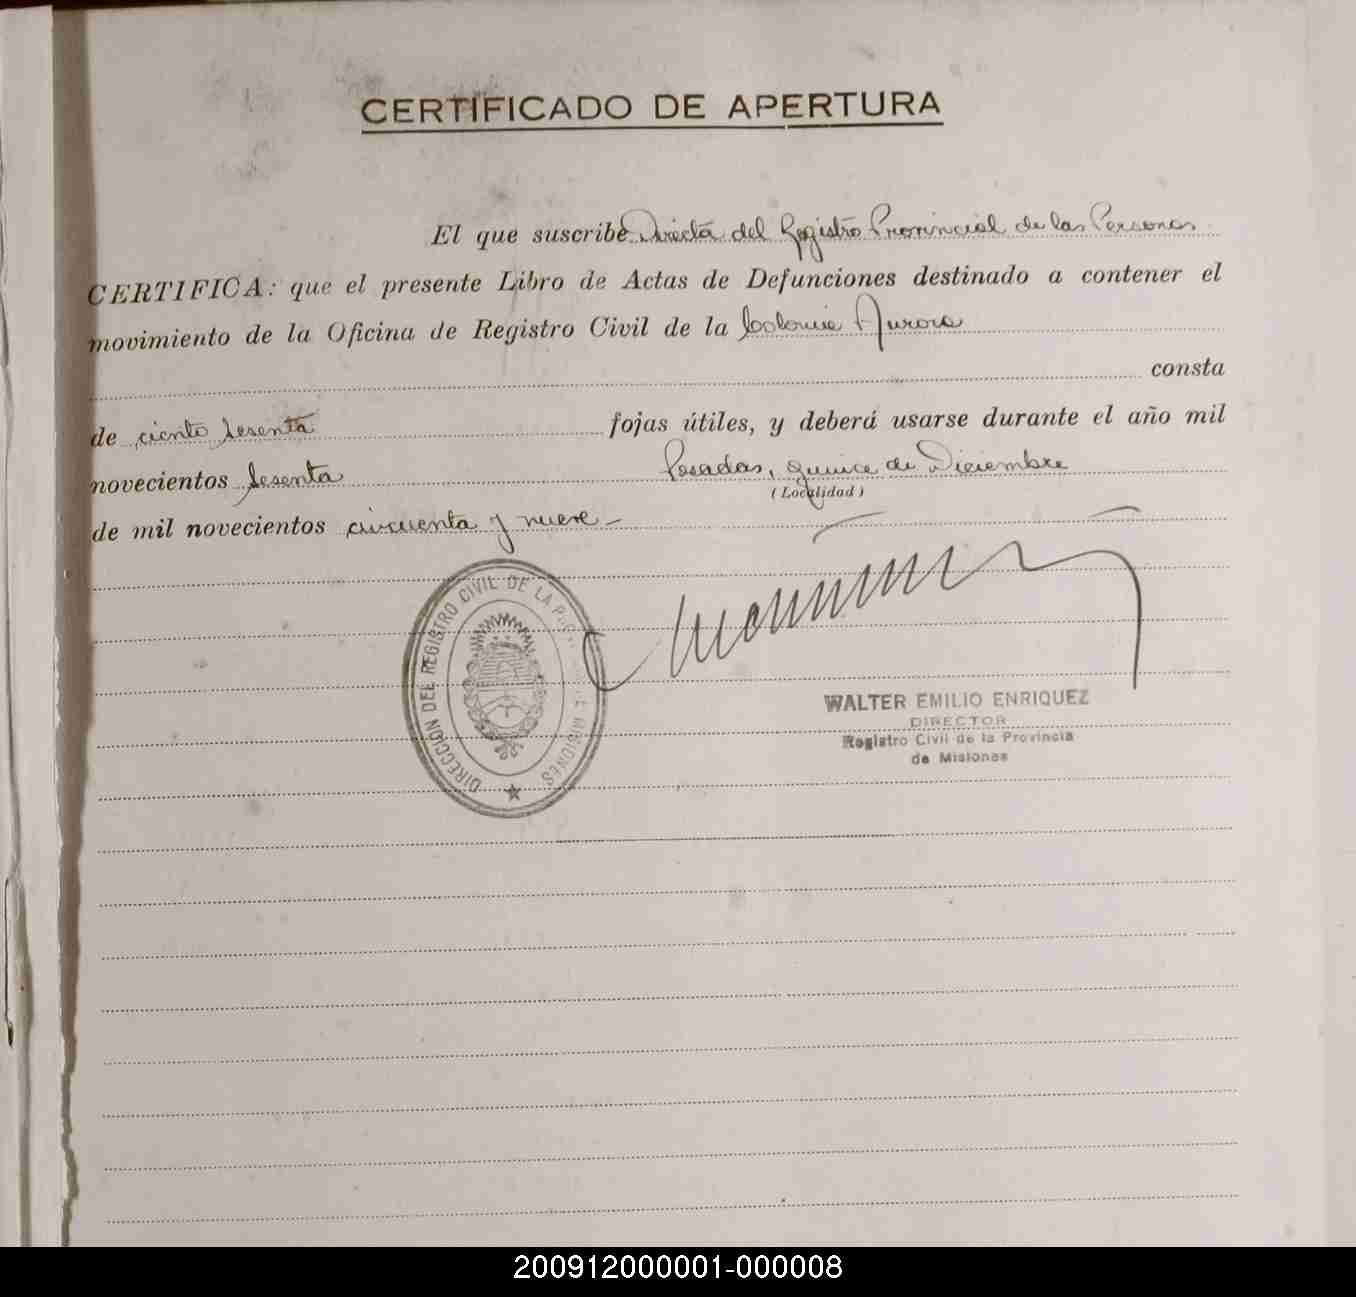 CERTIFICADO DE APERTURA
El que suscribe Directa del Registro Provincial de las Personas
CERTIFICA: que el presente Libro de Actas de Defunciones destinado a contener el
movimiento de la Oficina de Registro Civil de la Colonia Aurora
consta
de ciento sesenta fojas útiles, y deberá usarse durante el año mil
novecientos sesenta Posadas, quince de Diciembre
(Localidad)
de mil novecientos cincuenta y nueve
DIRECCION DEL REGISTRO CIVIL DE LA MISIONES
WALTER EMILIO ENRIQUEZ
DIRECTOR
Registro Civil de la Provincia
de Misiones
200912000001-000008